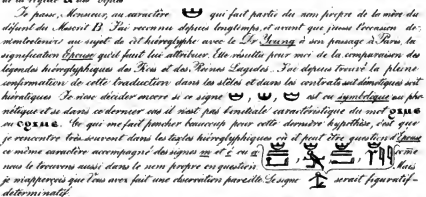 Je passe, Monsieur, au caractère qui fait partie du nom propre de la mère du
défunt du Manuscrit B. J'ai reconnu depuis longtemps, et avant que j'eusse l'occasion de
m'entretenir au sujet de cet hiéroglyphe avec le Dr Young à son passage à Paris, la
signification Épouse qu'il faut lui attribuer. Elle résulte pour moi de la comparaison des
légendes hiéroglyphiques des Rois et des Reines Lagides. J'ai depuis trouvé la pleine
confirmation de cette traduction dans les stèles et dans les contrats soit démotiques soit
hiératiques. Je n'ose décider encore si ce signe , , est symbolique ou pho-
nétique et si dans ce dernier cas il n'est pas l'initiale caractéristique du mot
ou . Ce qui me fait pencher beaucoup pour cette dernière hypothèse, que
je rencontre très souvent dans les textes hiéroglyphiques où il peut être question d'Épouse
ce même caractère accompagné des signes m et t ou comme
nous le trouvons aussi dans le nom propre en question Mais
je m'apperçois que Vous avez fait une observation pareille. Le signe serait figuratif-
déterminatif.